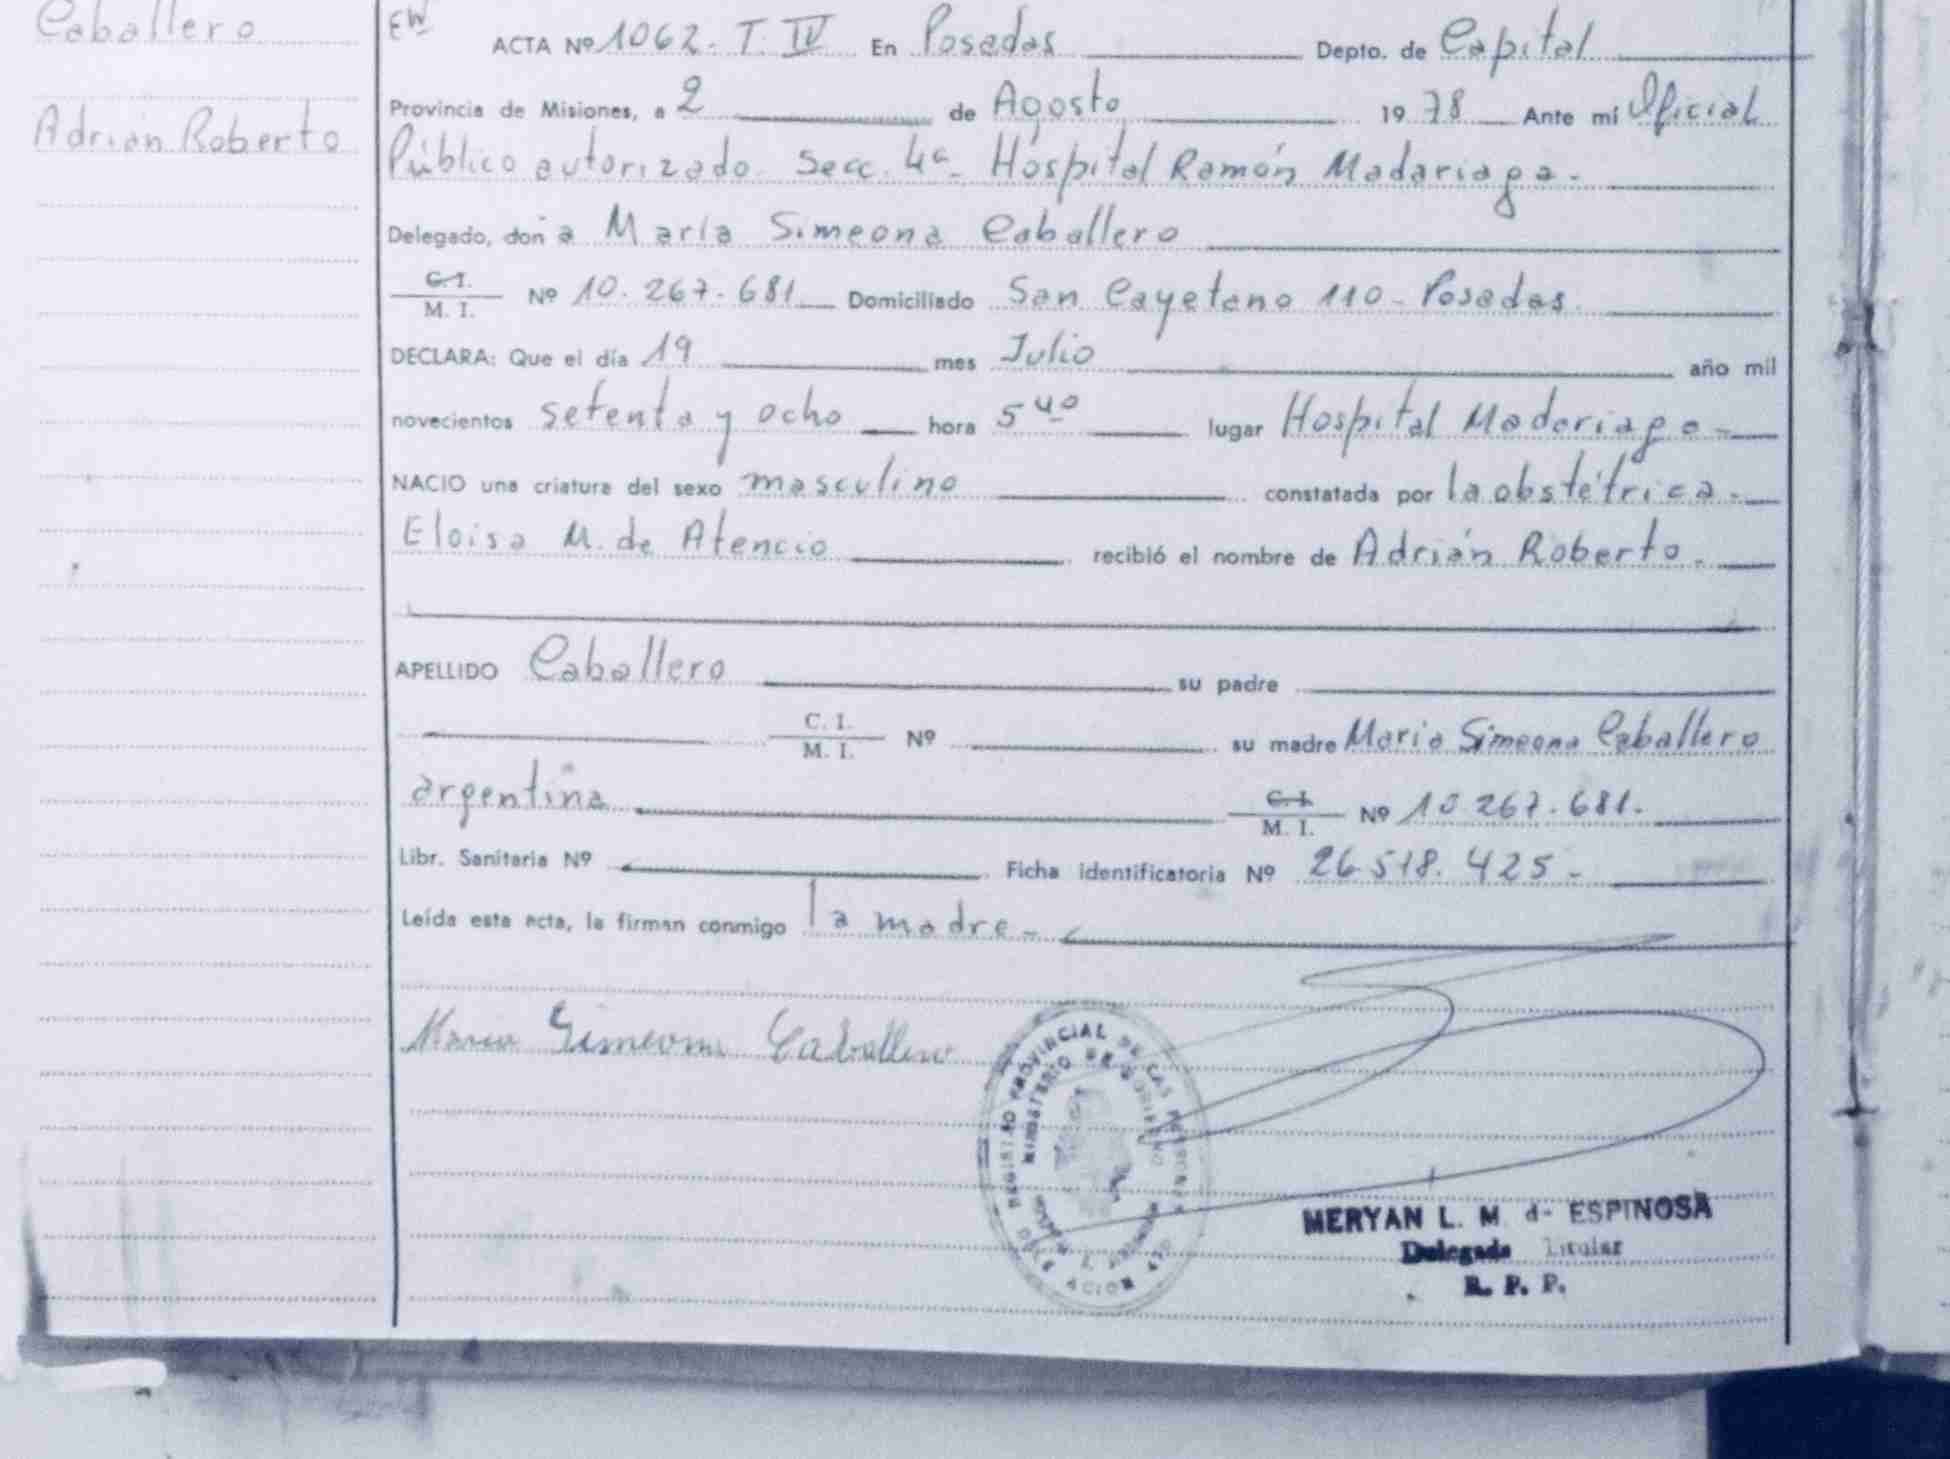 Caballero
Adrián Roberto
EW
ACTA Nº 1062. T. IV En Posadas Depto. de Capital
Provincia de Misiones, a 2 de Agosto 19 78 Ante mí Oficial
Público autorizado. Secc. 4ª. Hospital Ramón Madariaga.
Delegado, don a María Simeona Caballero
C. I.
M. I. Nº 10.267.681 Domiciliado San Cayetano 110 - Posadas.
DECLARA: Que el día 19 mes Julio año mil
novecientos setenta y ocho hora 5 40 lugar Hospital Madariaga -
NACIO una criatura del sexo masculino constatada por la obstétrica.
Eloisa M. de Atencio recibió el nombre de Adrián Roberto.
APELLIDO Caballero su padre
C. I.
M. I. Nº su madre Maria Simeona Caballero
argentina C. I.
M. I. Nº 10.267.681.
Libr. Sanitaria Nº Ficha identificatoria Nº 26.518.425 -
Leída esta acta, la firman conmigo la madre -
Maria Simeona Caballero
REGISTRO PROVINCIAL DE LAS PERSONAS
MINISTERIO DE GOBIERNO
MERYAN L. M. de ESPINOSA
Delegada Titular
R. P. P.